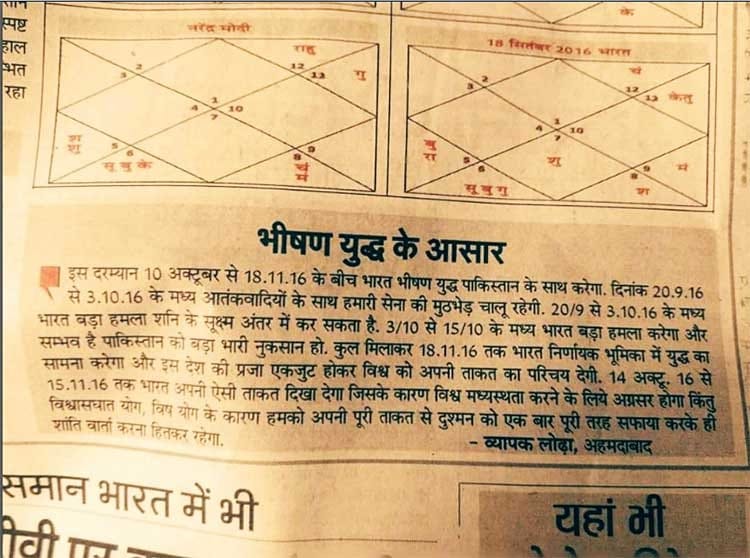 स्पष्ट
हाल
भत
रहा
के
नरेंद्र मोदी
राहु
गु
12
11
2
3
1
4
10
7
श
शु
5
6
सू बु के
9
8
चं
मं
18 सितंबर 2016 भारत
चं
12
11
केतु
2
3
1
4
10
7
बु
रा
5
6
शु
सू बु गु
9
8
मं
श
भीषण युद्ध के आसार
इस दरम्यान 10 अक्टूबर से 18.11.16 के बीच भारत भीषण युद्ध पाकिस्तान के साथ करेगा. दिनांक 20.9.16
से 3.10.16 के मध्य आतंकवादियों के साथ हमारी सेना की मुठभेड़ चालू रहेगी. 20/9 से 3.10.16 के मध्य
भारत बड़ा हमला शनि के सूक्ष्म अंतर में कर सकता है. 3/10 से 15/10 के मध्य भारत बड़ा हमला करेगा और
सम्भव है पाकिस्तान को बड़ा भारी नुकसान हो. कुल मिलाकर 18.11.16 तक भारत निर्णायक भूमिका में युद्ध का
सामना करेगा और इस देश की प्रजा एकजुट होकर विश्व को अपनी ताकत का परिचय देगी. 14 अक्टू. 16 से
15.11.16 तक भारत अपनी ऐसी ताकत दिखा देगा जिसके कारण विश्व मध्यस्थता करने के लिये अग्रसर होगा किंतु
विश्वासघात योग, विष योग के कारण हमको अपनी पूरी ताकत से दुश्मन को एक बार पूरी तरह सफाया करके ही
शांति वार्ता करना हितकर रहेगा.
- व्यापक लोढ़ा, अहमदाबाद
समान भारत में भी
यहां भी